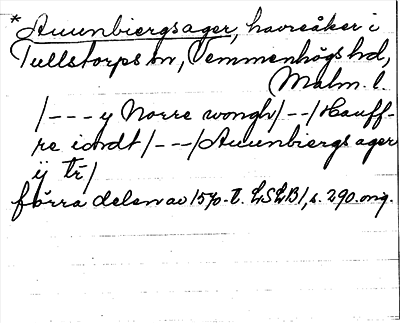 * Auunbiergsager, havreåker i
Tullstorps sn, Vemmenhögs hd,
Malm. l.
/--- y Norre wongh/--/Hauff-
re iordt/---/Auunbiergs ager
ij
förra delen av 1570-t. LSLB1, s. 290. orig.